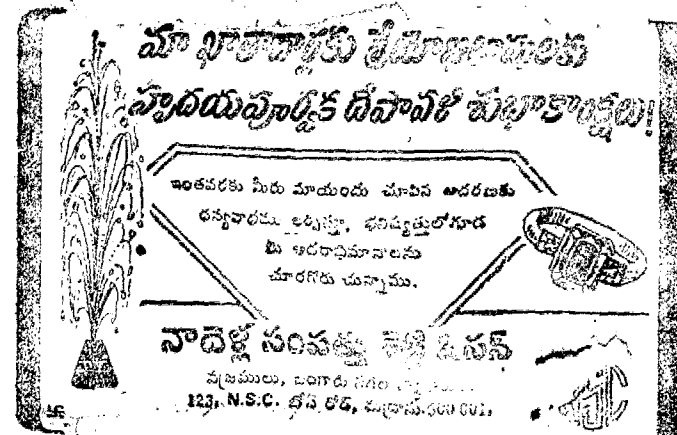 మా ఖాతాదార్లకు శ్రేయోభిలాషులకు
హృదయపూర్వక దీపావళి శుభాకాంక్షలు!
ఇంతవరకు మీరు మాయందు చూపిన ఆదరణకు
ధన్యవాదము లర్పిస్తూ, భవిష్యత్తులోగూడ
మీ ఆదరాభిమానాలను
చూరగొరు చున్నాము.
నాదెళ్ల సంపత్తు శెట్టి &
వజ్రములు, బంగారు నగల
123, N.S.C. బోస్ రోడ్, మద్రాసు.600 001.